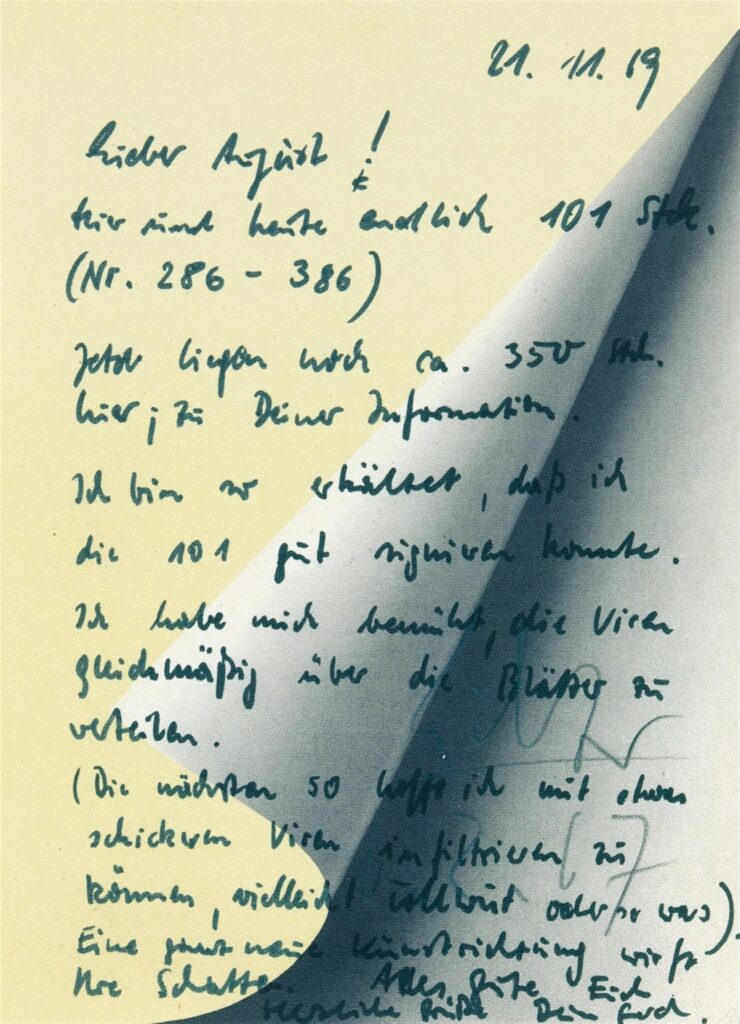 21. 11. 69
Lieber August!
hier sind heute endlich 101 Stck.
(Nr. 286 - 386)
Jetzt liegen noch ca. 350 Stck.
hier; zu Deiner Information.
Ich bin so erkältet, daß ich
die 101 gut signieren konnte.
Ich habe mich bemüht, die Viren
gleichmäßig über die Blätter zu
verteilen.
(Die nächsten 50 hoffe ich mit etwas
schickeren Viren infiltrieren zu
können, vielleicht Tollwut oder so was).
Eine ganz neue Kunstrichtung wirft
Ihre Schatten. Alles Gute Euch
Herzliche Grüße Dein